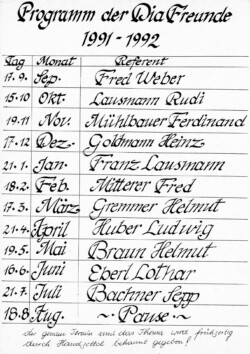 Programm der Dia Freunde
1991-1992
Tag Monat Referent
17.9. Sep. Fred Weber
15.10 Okt. Lausmann Rudi
19.11 Nov. Mühlbauer Ferdinand
17.12 Dez. Goldmann Heinz
21.1. Jan. Franz Lausmann
18.2. Feb. Mitterer Fred
17.3. März Gremmer Helmut
21.4. April Huber Ludwig
19.5. Mai Braun Helmut
16.6. Juni Eberl Lothar
21.7. Juli Bachner Sepp
18.8. Aug. ~ Pause ~
der genaue Termin und das Thema wird frühzeitig
durch Handzettel bekannt gegeben!